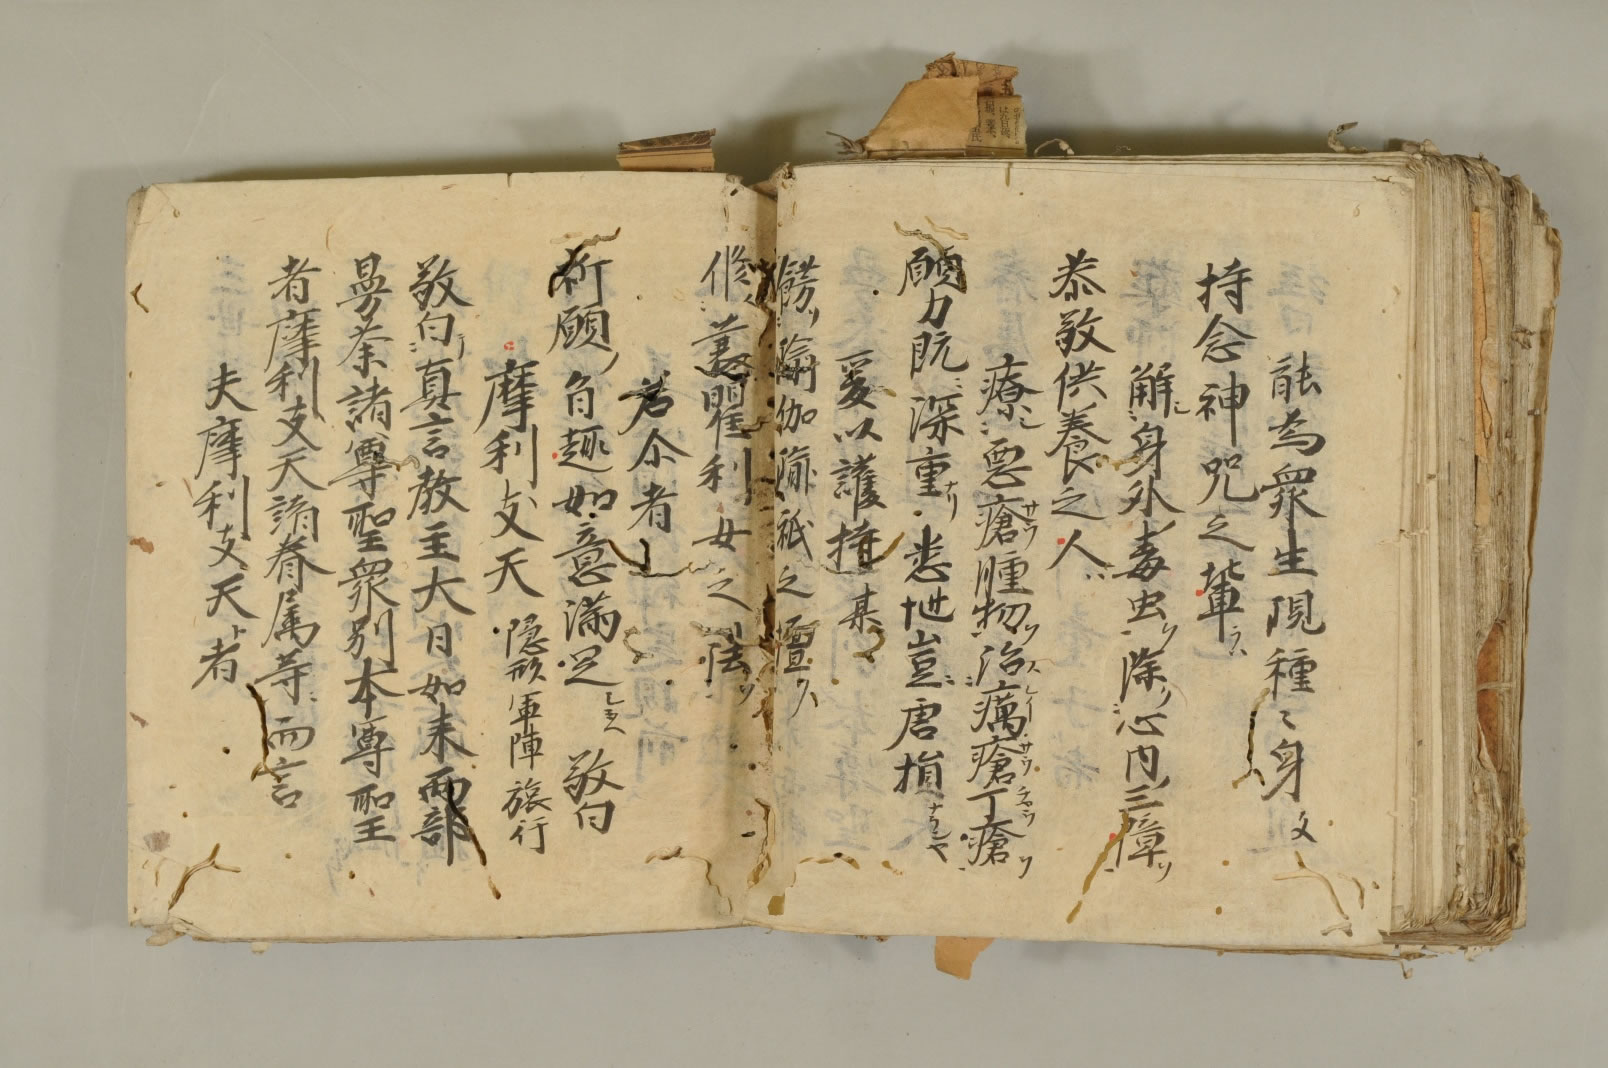 能為衆生現種〻身文
持念神呪之輩ラハ
解シ身外毒虫ヲ除ソ心内三障ヲ
恭敬供養之人ハ
療シ悪瘡サウ腫物ヲ治スレー癘瘡サウ丁瘡ヲ
願力既ニ深重ナリ悉地豈ニ唐捐ナランヤ
爰以護持某
餝ソ瑜伽瑜祇之壇ヲハ
修ソ蘘麌瞿利女之法ヲ
若尒者
祈願ノ旨趣如意満足シ玉ヘ敬白
摩利支天 隠形軍陣旅行
敬白真言教主大日如来両部
曼荼諸尊聖衆別本尊聖
者摩利支天諸眷属等ニ而言
夫摩利支天者